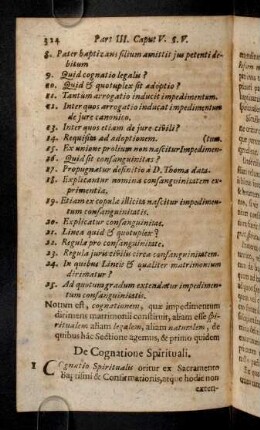 314 Part III. Caput V. §. V.
8. Pater baptizans filium amittit jus petenti debitum
9. Quid cognatio legalis?
10. Quid & quotuplex sit adoptio?
11. Tantum arrogatio inducit impedimentum.
12. Inter quos arrogatio inducat impedimentum
de jure canonico.
13. Inter quos etiam de jure civili?
14. Requisita ad adoptionem. (tum.
15. Ex unione prolium non nascitur Impedimen-
16. Quid sit consanguinitas?
17. Propugnatur definitio à D. Thoma data.
18. Explicantur nomina consanguinitatem ex-
primentia.
19. Etiam ex copula illicita nascitur impedimen-
tum consanguinitatis.
20. Explicatur consanguinitas.
21. Linea quid & quotuplex?
22. Regula pro consanguinitate.
23. Regula juris civilis circa consanguinitatem.
24. In quibus Lineis & qualiter matrimonium
dirimatur?
25. Ad quotum gradum extendatur impedimen-
tum consanguinitatis.
Notum est, cognationem, quæ impedimentum
dirimens matrimonii constituit, aliam esse spi-
ritualem aliam legalem, aliam naturalem, de
quibus hâc Sectione agemus, & primo quidem
De Cognatione Spirituali.
1 Cognatio Spiritualis oritur ex Sacramento
Baptismi & Confirmationis, neque hodie non
exten-